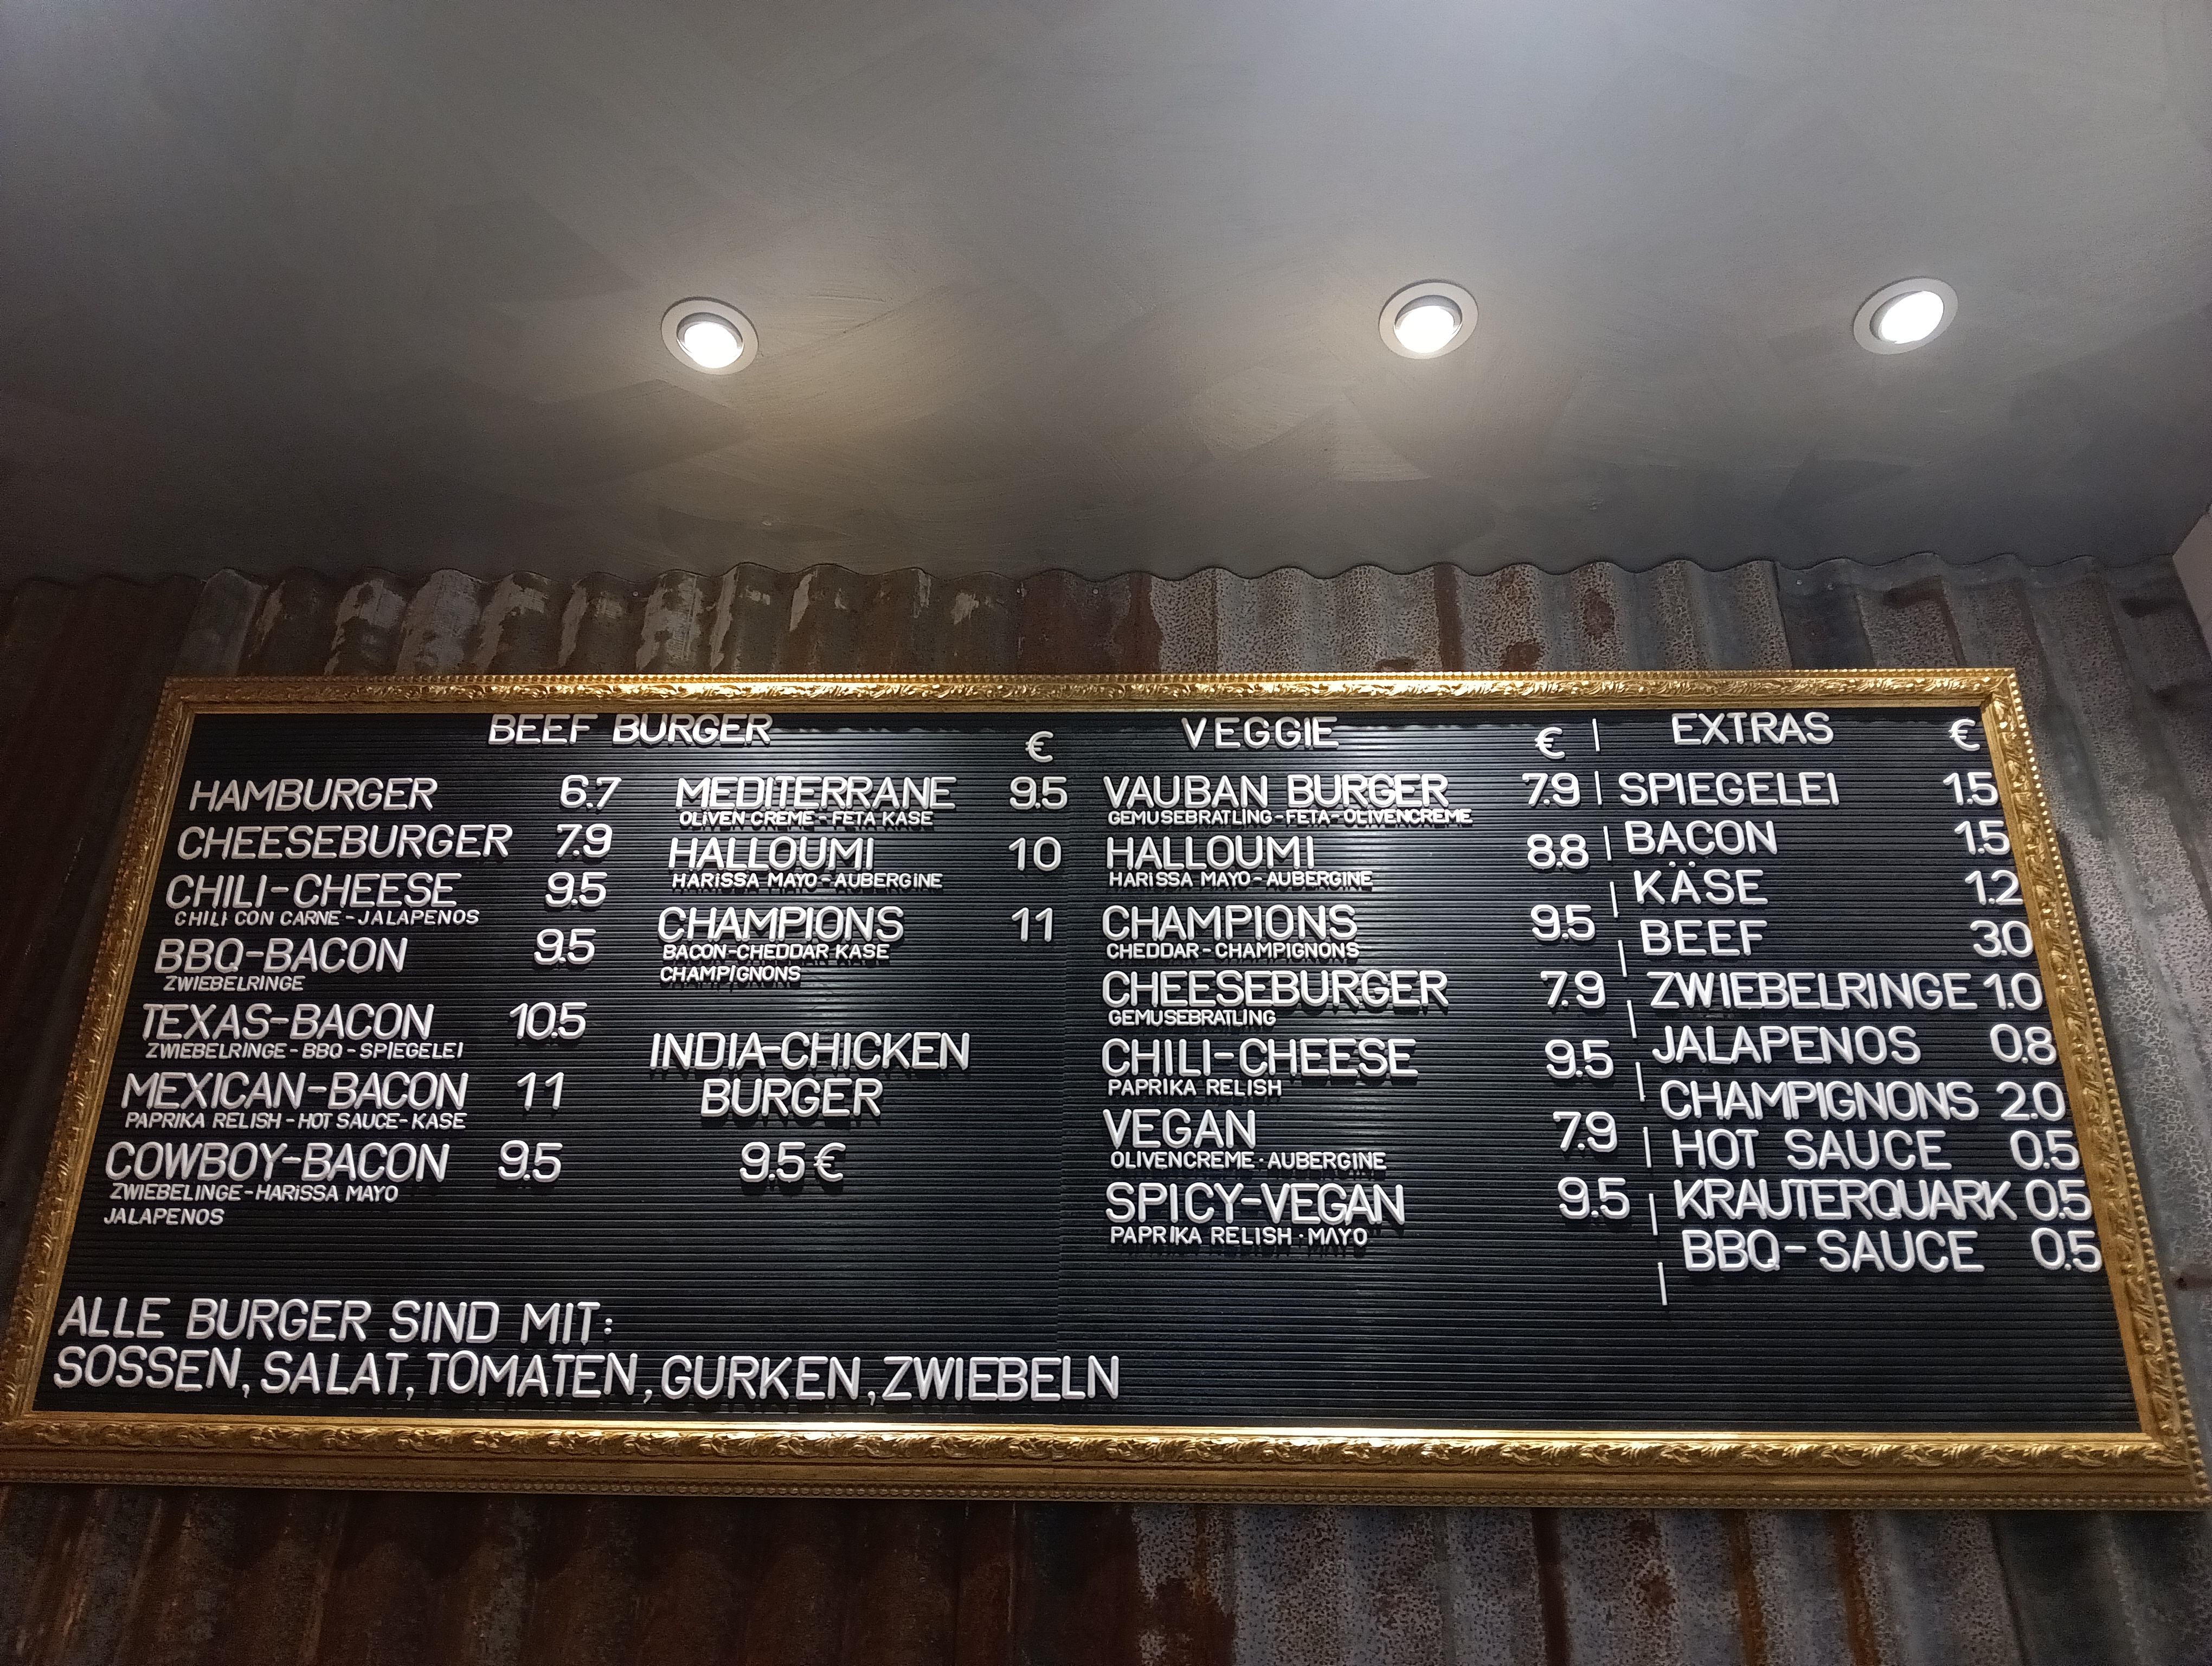 BEEF BURGER
€
HAMBURGER 6.7
CHEESEBURGER 7.9
CHILI-CHEESE 9.5
CHILI CON CARNE-JALAPENOS
BBQ-BACON 9.5
ZWIEBELRINGE
TEXAS-BACON 10.5
ZWIEBELRINGE-BBQ-SPIEGELEI
MEXICAN-BACON 11
PAPRIKA RELISH-HOT SAUCE-KASE
COWBOY-BACON 9.5
ZWIEBELINGE-HARISSA MAYO
JALAPENOS
MEDITERRANE 9.5
OLIVEN CREME-FETA KASE
HALLOUMI 10
HARISSA MAYO-AUBERGINE
CHAMPIONS 11
BACON-CHEDDAR KASE
CHAMPIGNONS
INDIA-CHICKEN
BURGER
9.5 €
VEGGIE
€
VAUBAN BURGER 7.9
GEMUSEBRATLING-FETA-OLIVENCREME
HALLOUMI 8.8
HARISSA MAYO-AUBERGINE
CHAMPIONS 9.5
CHEDDAR-CHAMPIGNONS
CHEESEBURGER 7.9
GEMUSEBRATLING
CHILI-CHEESE 9.5
PAPRIKA RELISH
VEGAN 7.9
OLIVENCREME·AUBERGINE
SPICY-VEGAN 9.5
PAPRIKA RELISH·MAYO
EXTRAS €
SPIEGELEI 1.5
BACON 1.5
KÄSE 1.2
BEEF 3.0
ZWIEBELRINGE 1.0
JALAPENOS 0.8
CHAMPIGNONS 2.0
HOT SAUCE 0.5
KRAUTERQUARK 0.5
BBQ-SAUCE 0.5
ALLE BURGER SIND MIT:
SOSSEN, SALAT, TOMATEN, GURKEN, ZWIEBELN